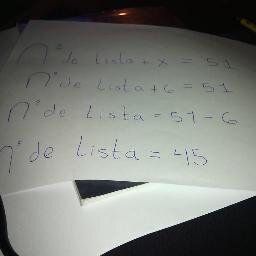 nº de lista + x = 51
nº de lista + 6 = 51
nº de lista = 51 - 6
nº de lista = 45